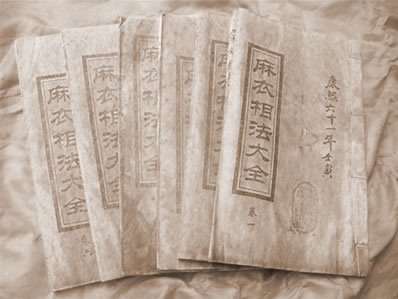 麻衣相法大全
麻衣相法大全
麻衣相法大全
麻衣相法大全
卷一
康熙六十一年壬寅